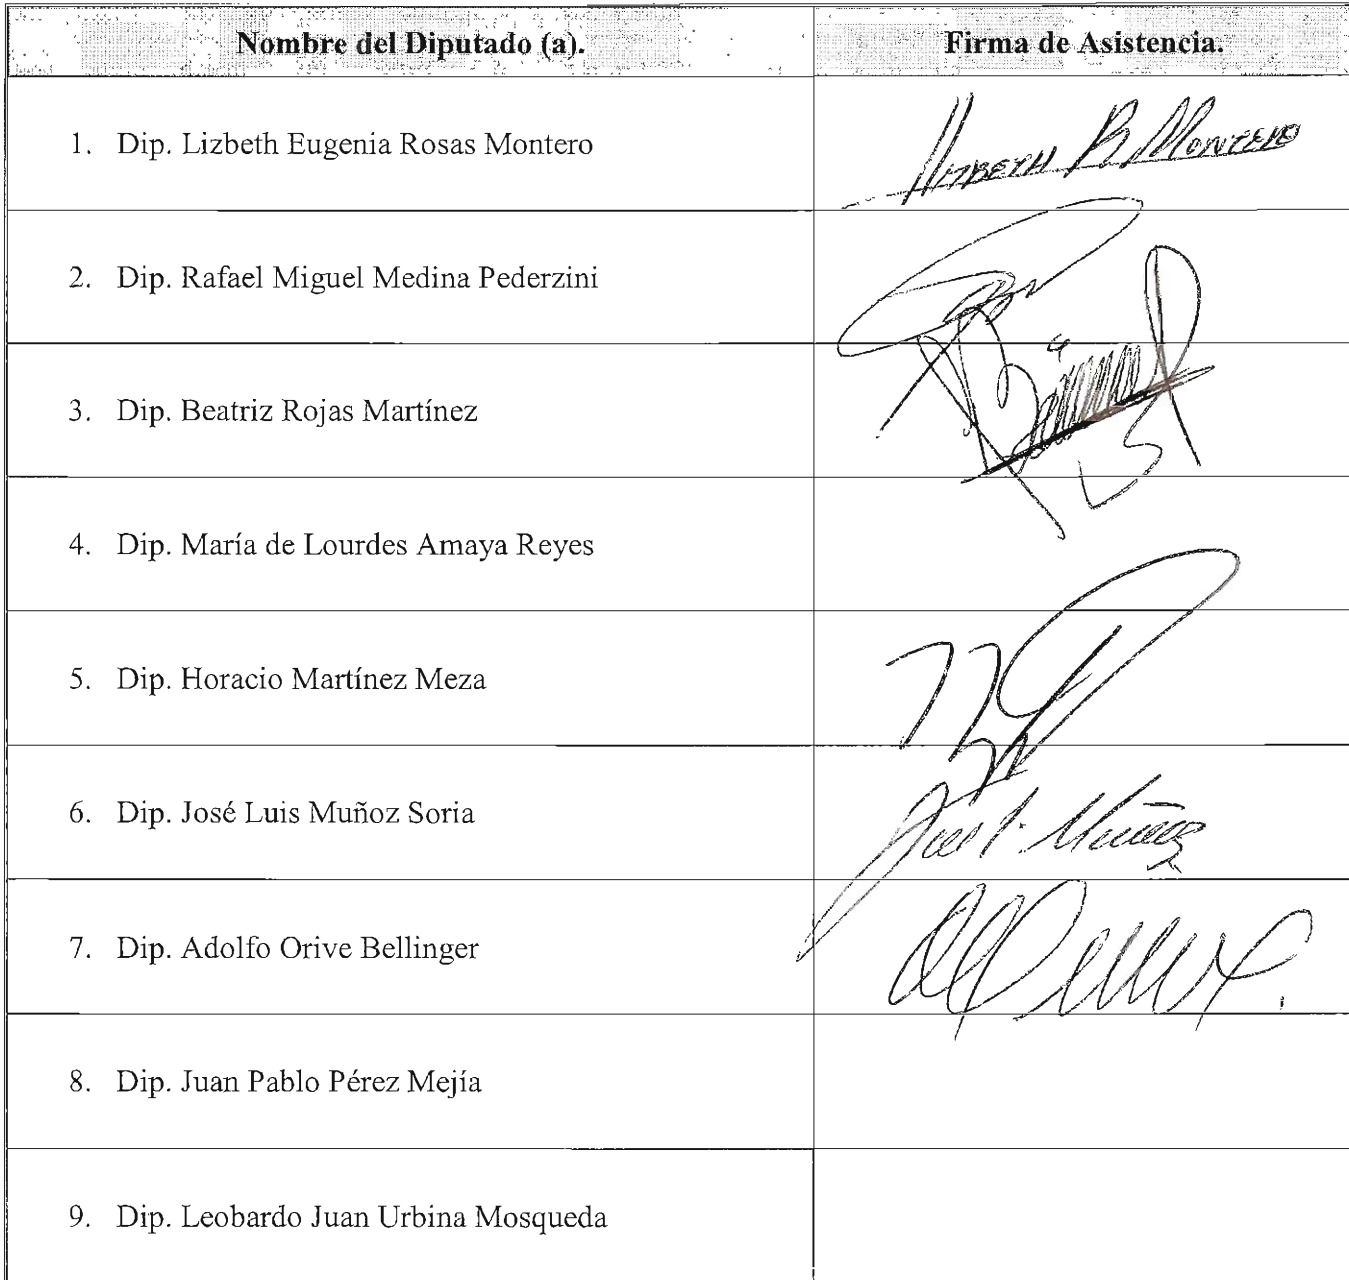 Nombre del Diputado (a). Firma de Asistencia.
1. Dip. Lizbeth Eugenia Rosas Montero LIZBETH R MONTERO
2. Dip. Rafael Miguel Medina Pederzini
3. Dip. Beatriz Rojas Martínez
4. Dip. María de Lourdes Amaya Reyes
5. Dip. Horacio Martínez Meza
6. Dip. José Luis Muñoz Soria
7. Dip. Adolfo Orive Bellinger
8. Dip. Juan Pablo Pérez Mejía
9. Dip. Leobardo Juan Urbina Mosqueda